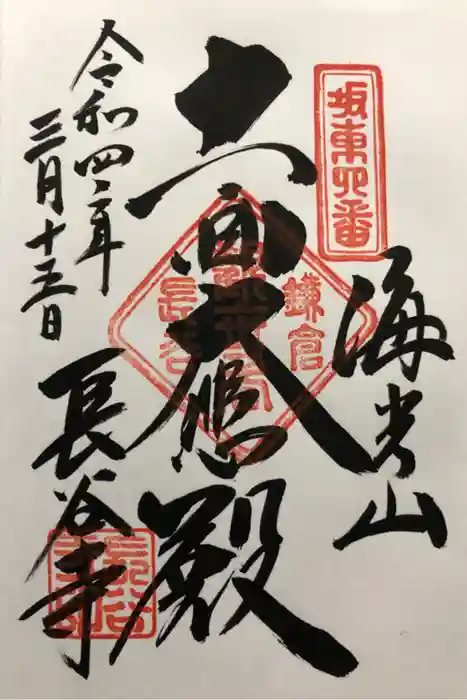 坂東四番
海光山
十一面大悲殿
鎌倉
長谷
令和四年
三月十三日
長谷寺